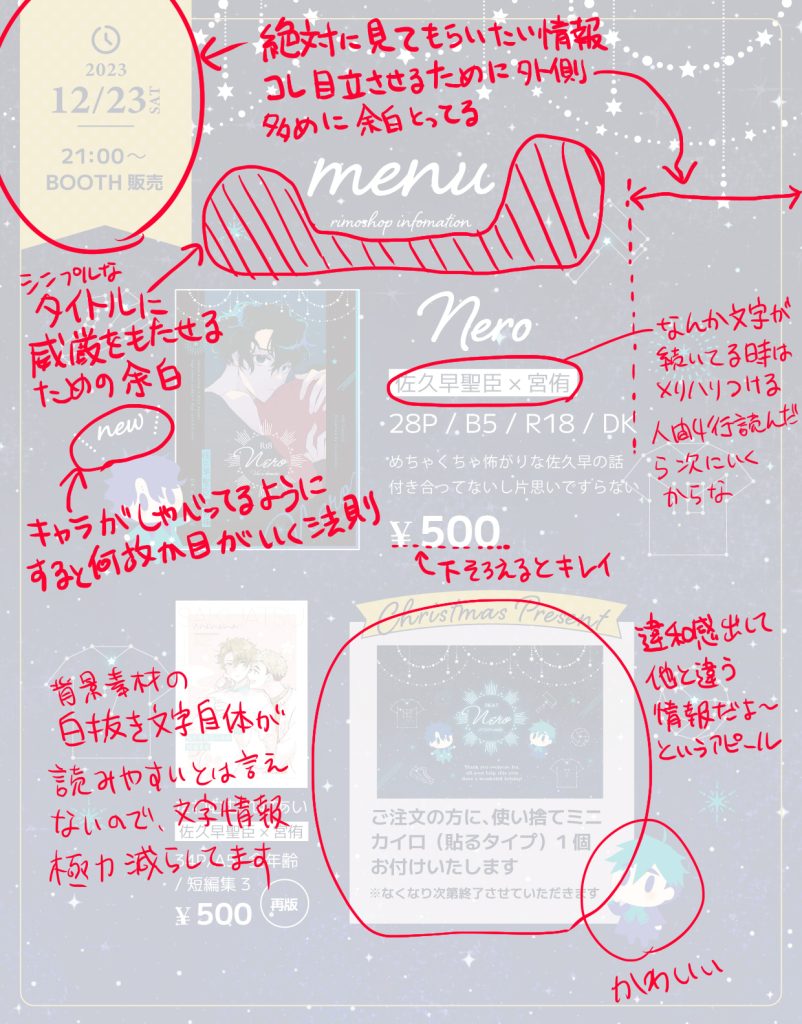 2023
12/23 SAT
21:00〜
BOOTH 販売
絶対に見てもらいたい情報
コレ目立させるために外側
多めに余白とってる
menu
rimoshop infomation
シンプルな
タイトルに
威厳をもたせる
ための余白
new
キャラがしゃべってるように
すると何故か目がいく法則
R18
Nero
Nero
佐久早聖臣 × 宮侑
28P / B5 / R18 / DK
めちゃくちゃ怖がりな佐久早の話
付き合ってないし片思いですらない
¥ 500
下そろえるとキレイ
なんか文字が
続いてる時は
メリハリつける
人間4行読んだ
ら次にいく
からな
背景素材の
白抜き文字自体が
読みやすいとは言え
ないので、文字情報
極力減らしてます
佐久早聖臣 × 宮侑
/ 短編集 3
¥ 500
再版
Christmas Present
Nero
ご注文の方に、使い捨てミニ
カイロ（貼るタイプ）1個
お付けいたします
※なくなり次第終了させていただきます
違和感出して
他と違う
情報だよ〜
というアピール
かわいい